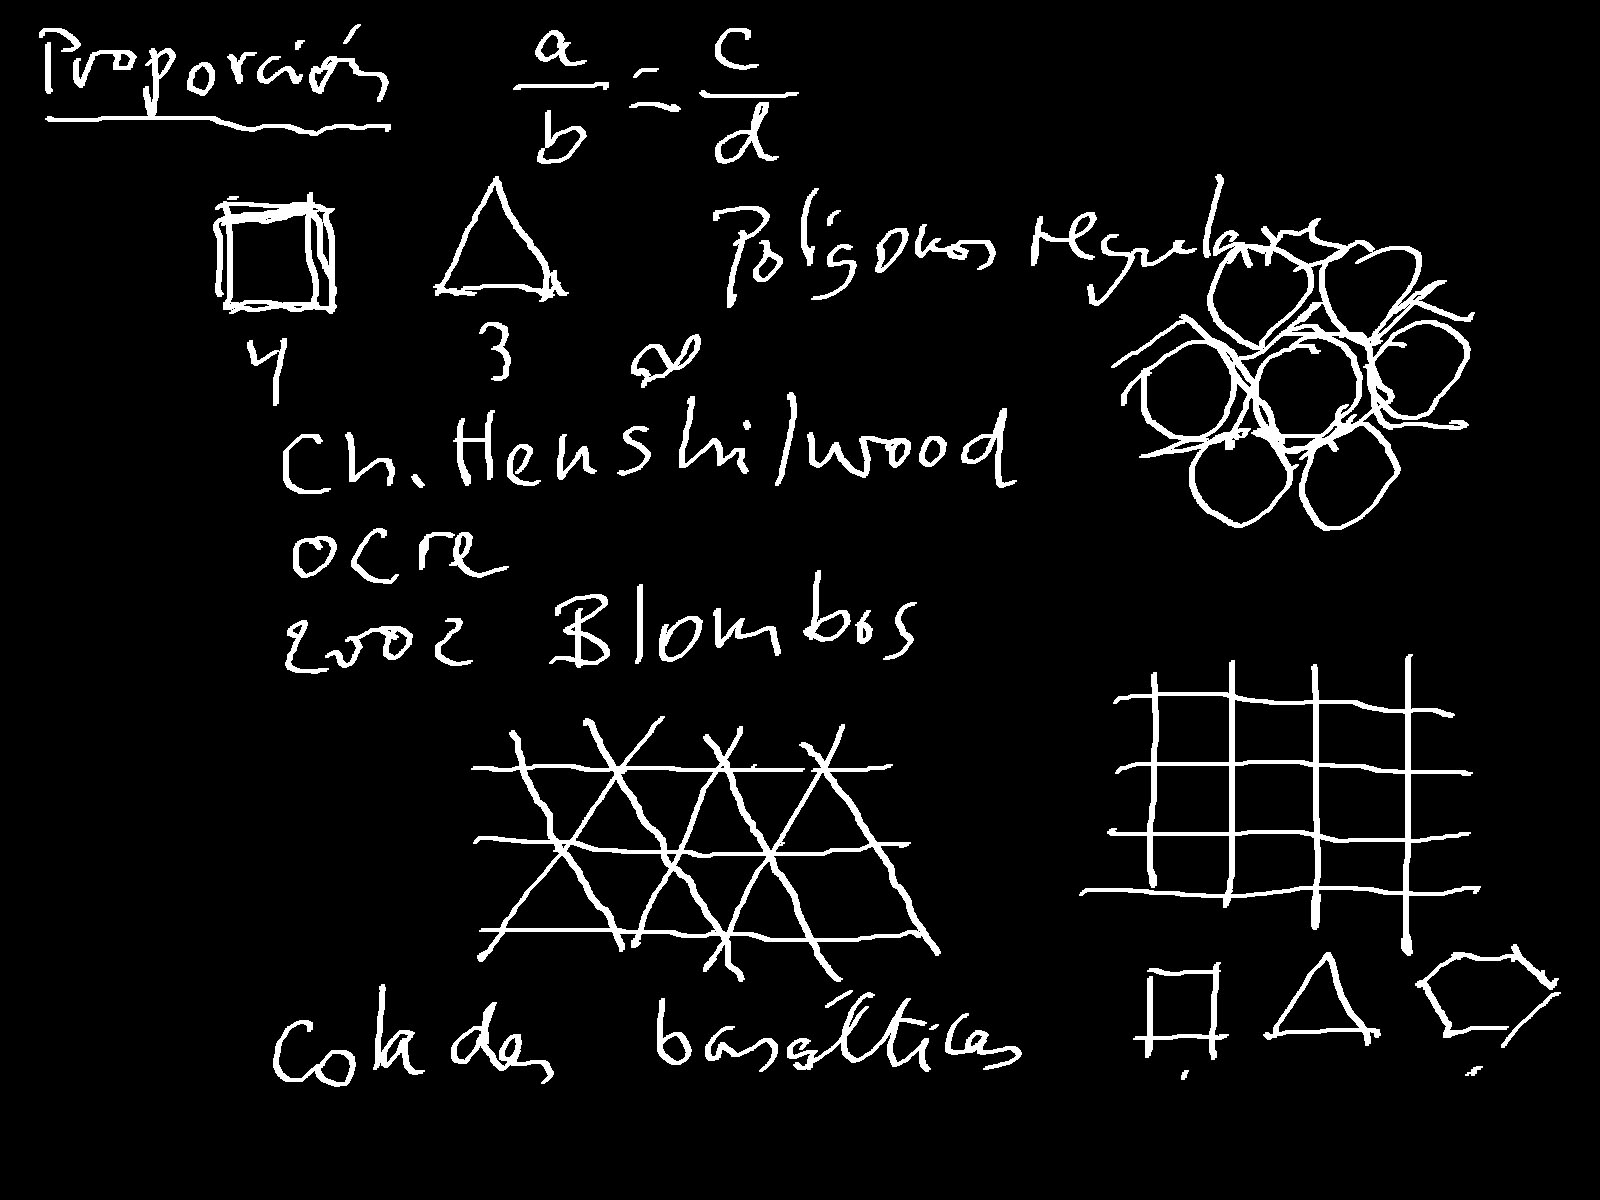 Proporción a/b = c/d
Polígonos regulares
4 3 ∞
Ch. Henshilwood
ocre
2002 Blombos
Coladas basálticas